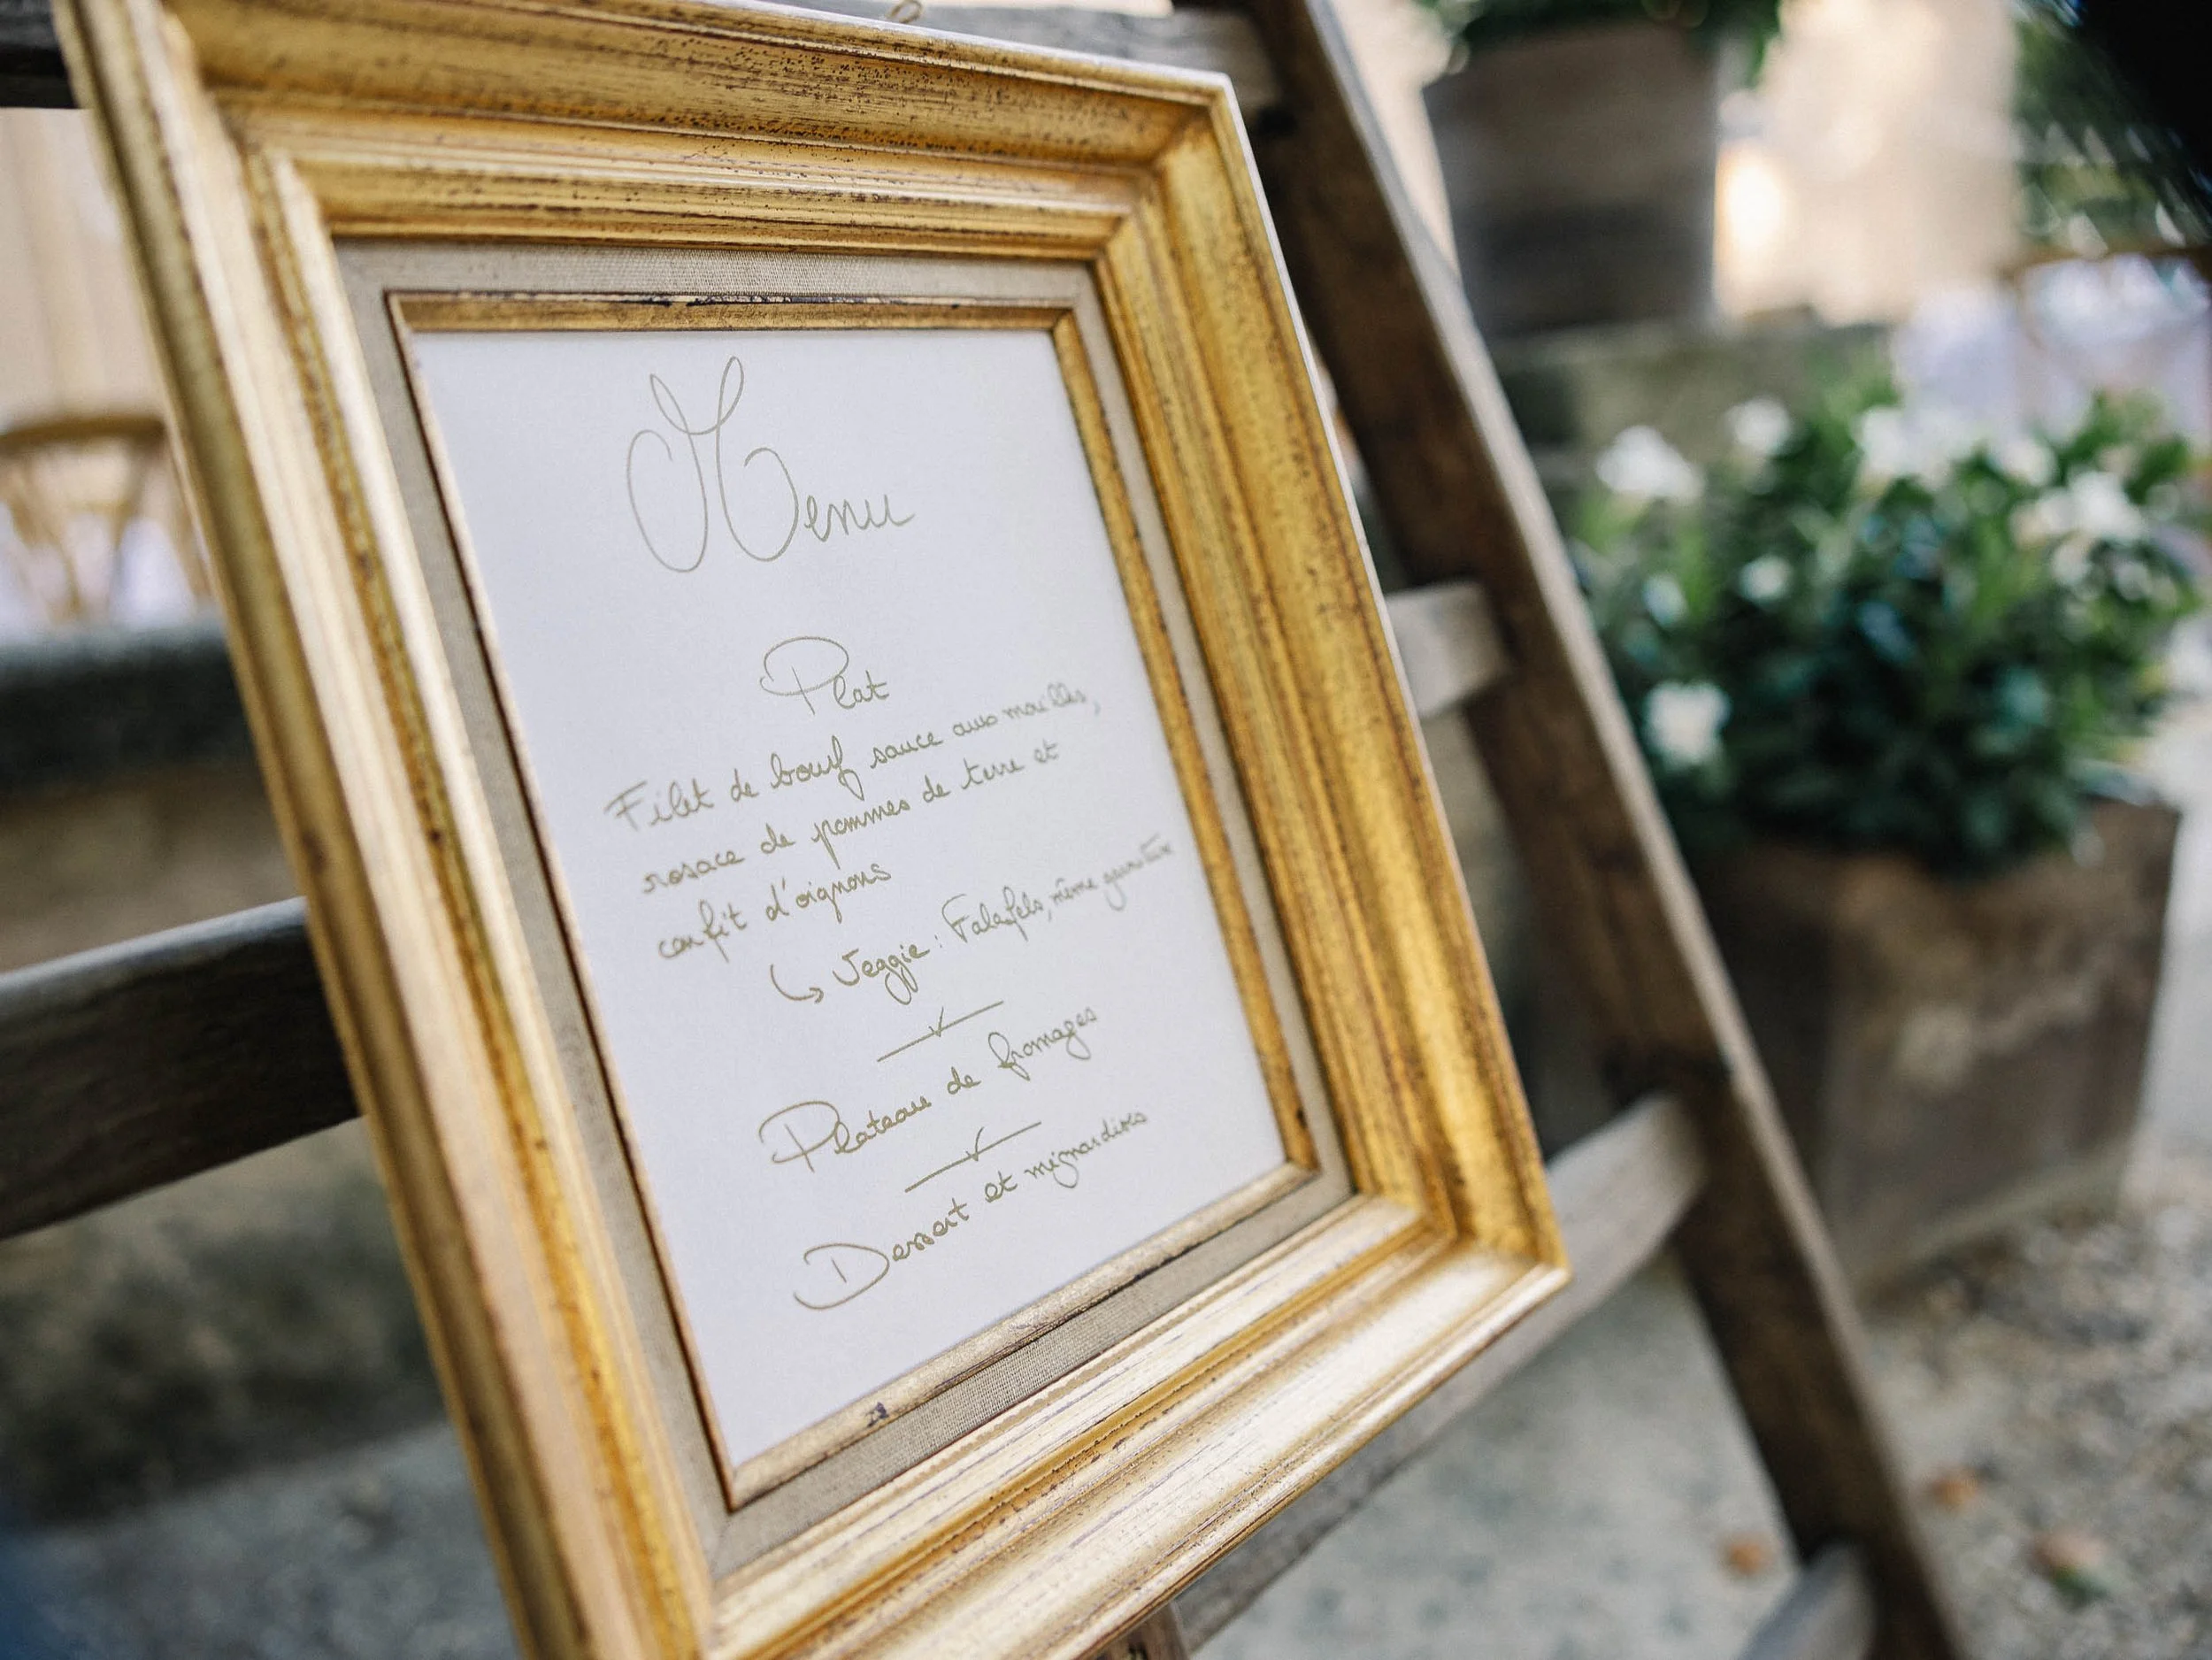 Menu
Plat
Filet de bœuf sauce aux morilles,
rosace de pommes de terre et
confit d'oignons
↳ Veggie : Falafels, même garniture
Plateau de fromages
Dessert et mignardises